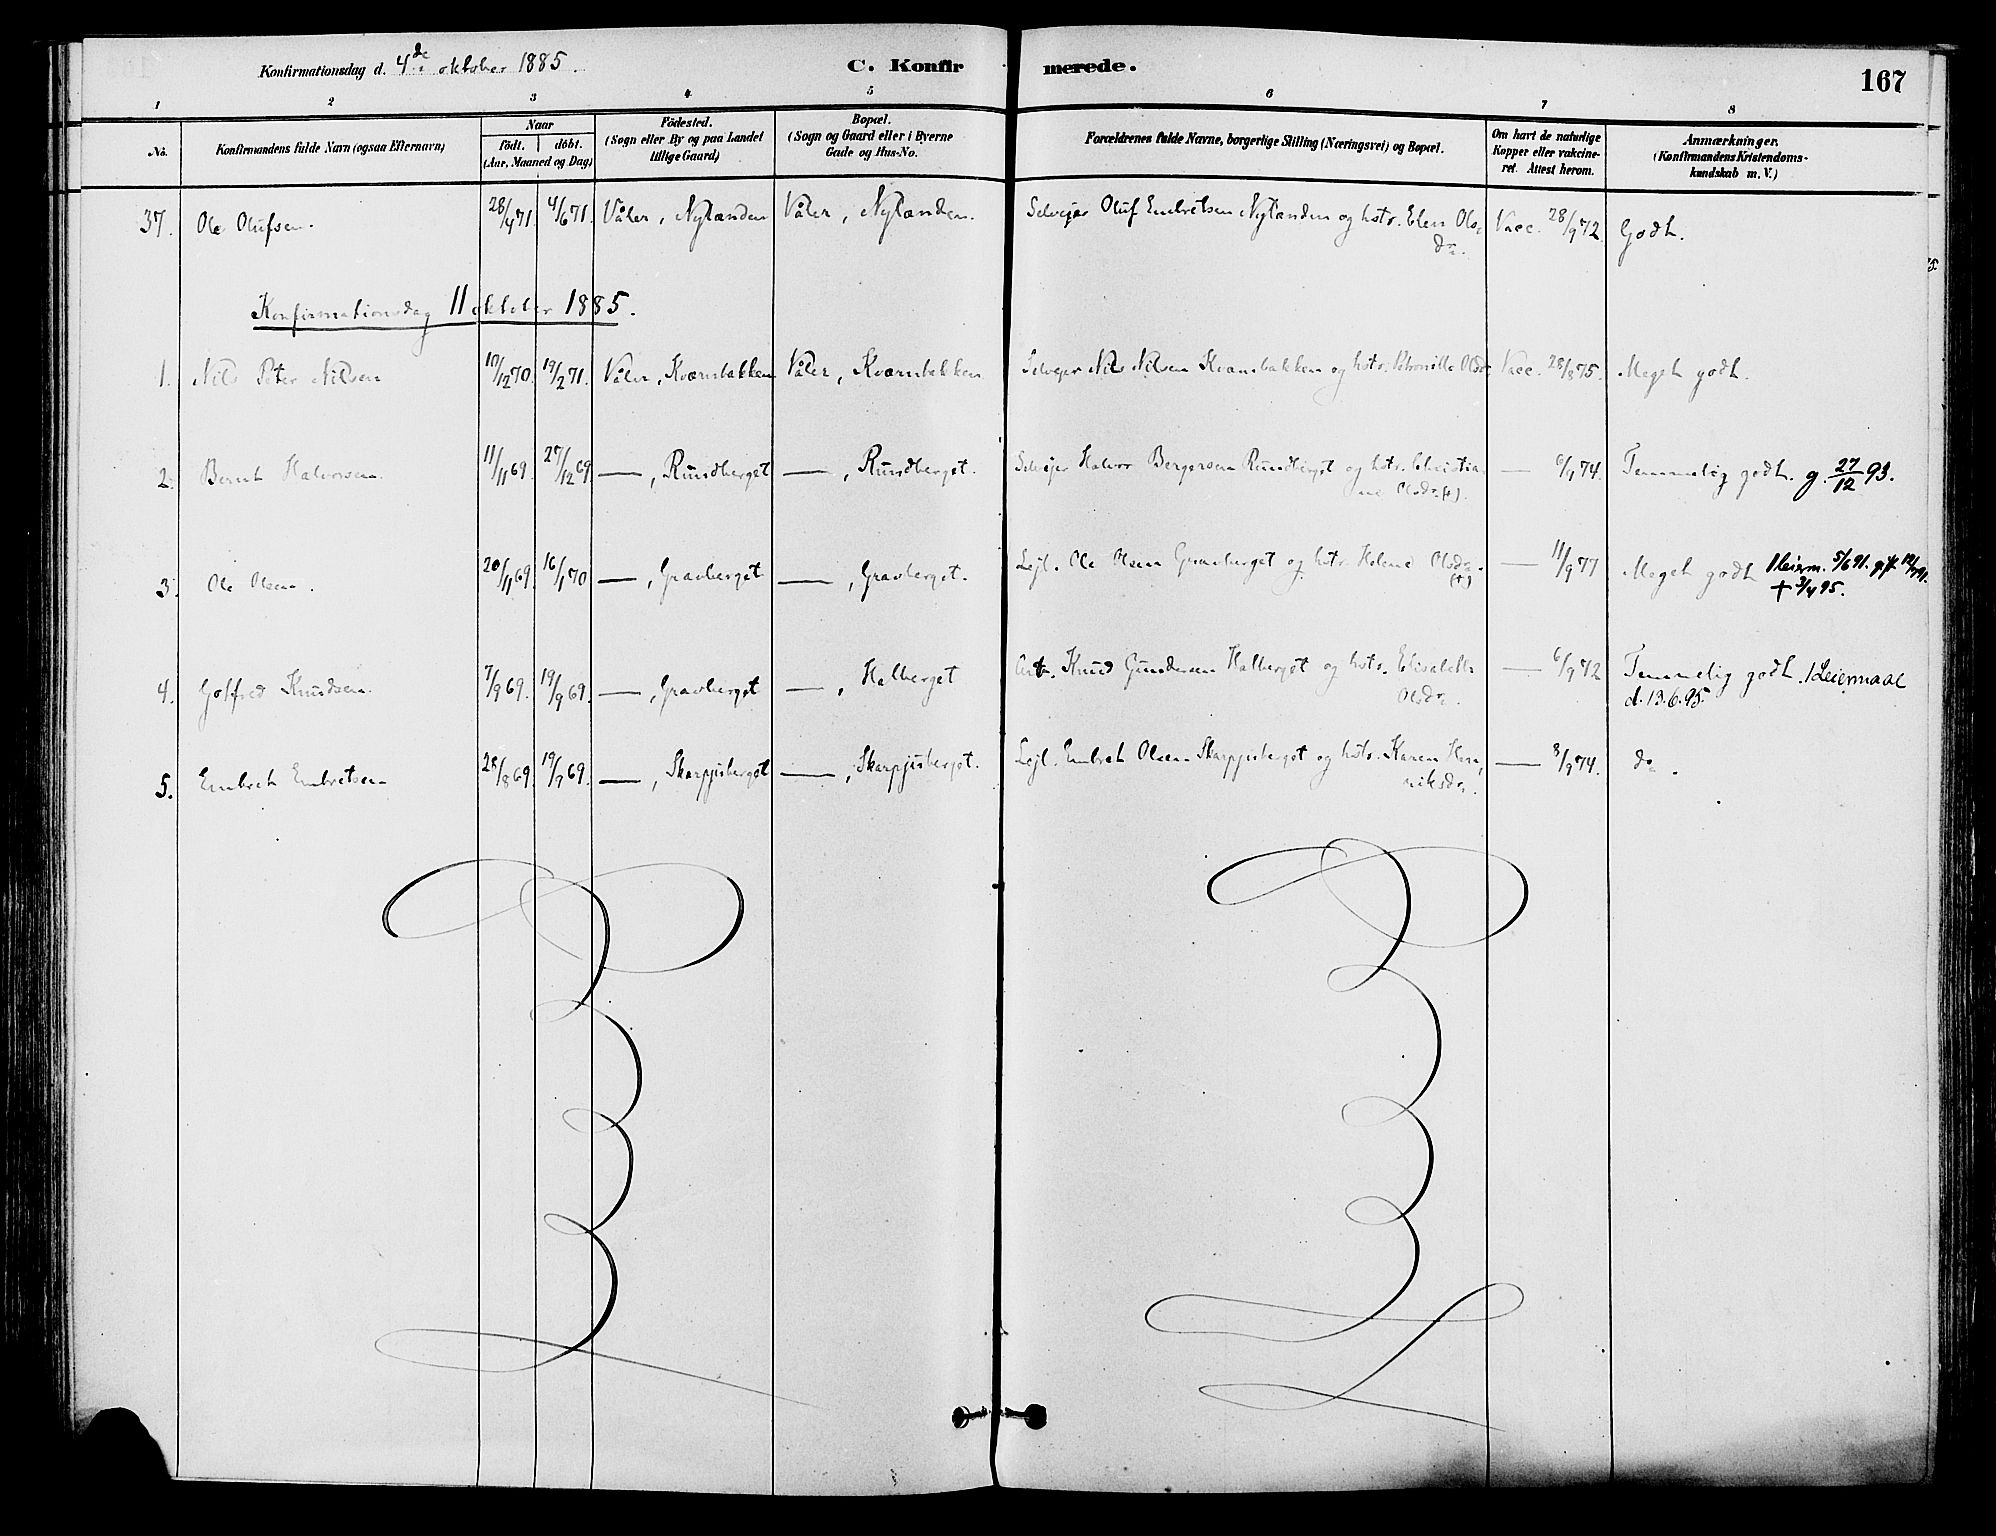 Konfirmationsdag d. 4de oktober 1885.
C. Konfirmerede.
167
1 2 3 4 5 6 7 8
No. Konfirmandens fulde Navn (ogsaa Efternavn) Naar födt. döbt. (Aar, Maaned og Dag) Födested. (Sogn eller By og paa Landet tillige Gaard) Bopæl. (Sogn og Gaard eller i Byerne Gade og Hus-No. Forældrenes fulde Navne, borgerlige Stilling (Næringsvei) og Bopæl. Om havt de naturlige Kopper eller vakcineret. Attest herom. Anmærkninger. (Konfirmandens Kristendomskundskab m. V.)
37. Ole Olufsen. 28/4 71. 4/6 71. Våler, Nylænden Våler, Nylænden. Selvejer Oluf Embretsen Nylænden og hstr. Elen Ols- Vacc. 28/9 72. Godt.
dr.
Konfirmationsdag 11 oktober 1885.
1. Nils Peter Nilsen 10/12 70. 19/2 71. Våler, Kværnbakken Våler, Kværnbakken Selvejer Nils Nilsen Kværnbakken og hstr. Petronille Olsdr. Vacc. 28/8 75. Meget godt.
2. Bernt Halvorsen. 11/11 69. 27/12 69. —, Rundberget —, Rundberget. Selvejer Halvor Bergersen Rundberget og hstr. Christia- — 6/9 74. Temmelig godt. g. 27/12 93.
ne Olsdr. (+).
3. Ole Olsen. 20/11 69. 16/1 70 —, Gravberget —, Gravberget. Lejl. Ole Olsen Gravberget og hstr. Helene Olsdr. — 11/9 77 Meget godt
(+) + 3/4 95.
4. Gotfred Knudsen. 7/9 69. 19/9 69. —, Gravberget —, Halberget Knud Gundersen Halberget og hstr. Elisabeth — 6/9 72 Temmelig godt. 1 Leiermaal
Olsdr. d. 13.6.95.
5. Embret Embretsen 28/8 69. 19/9 69. —, Skarpjisberget —, Skarpjisberget. Lejl. Embret Olsen Skarpjisberget og hstr. Karen Hen- — 8/9 74. do.
riksdr.